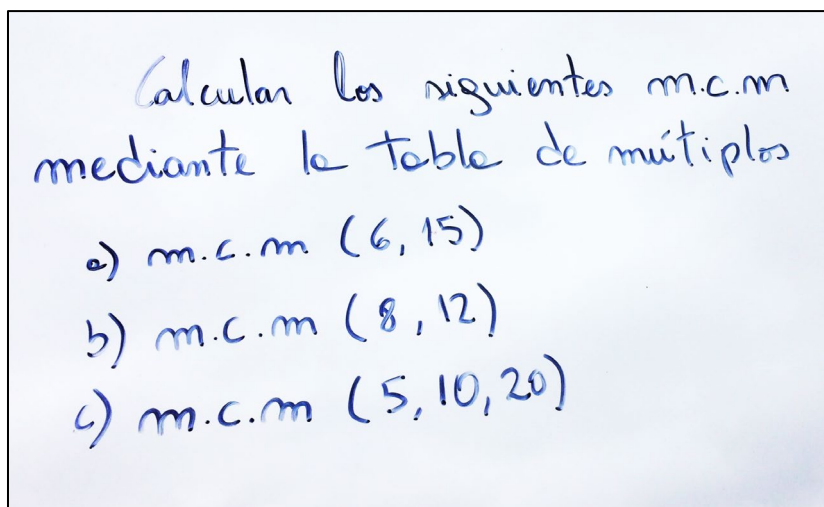 Calcular los siguientes m.c.m
mediante la tabla de mútiplos
a) m.c.m (6, 15)
b) m.c.m (8, 12)
c) m.c.m (5, 10, 20)